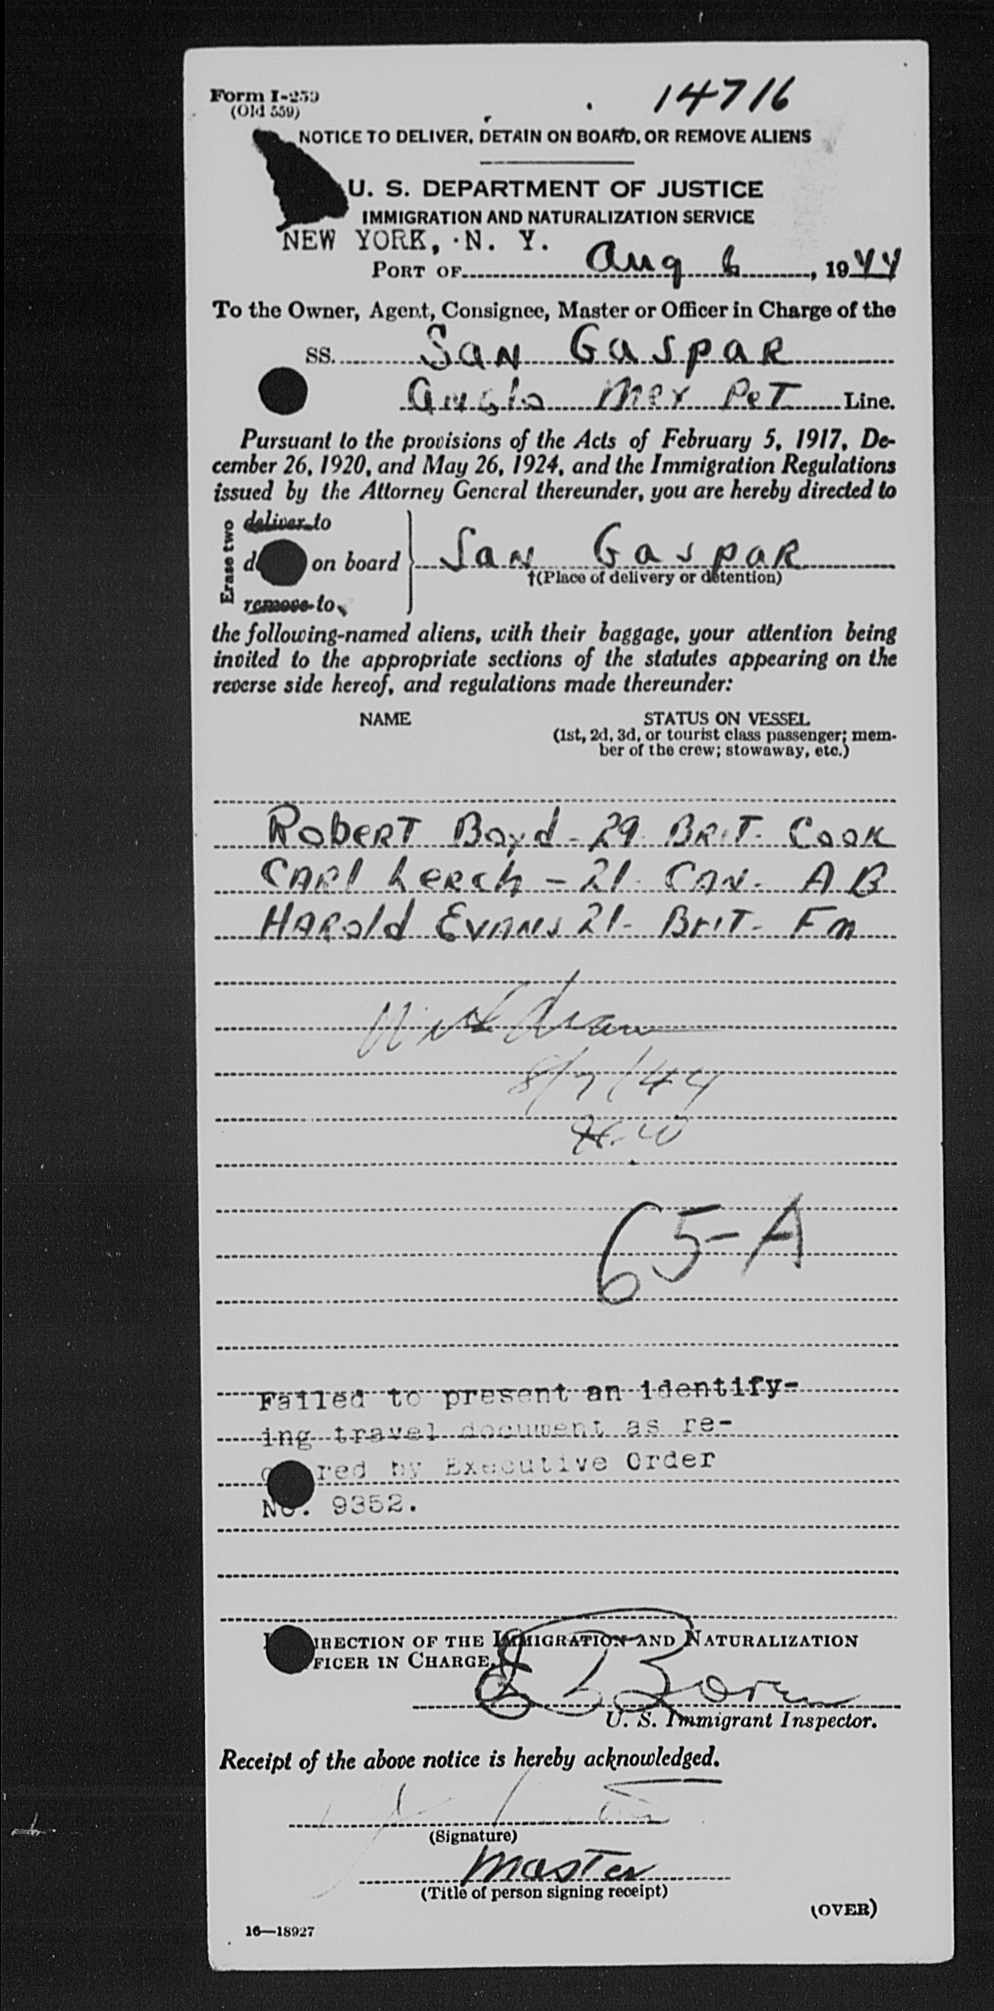 Form I-259
(Old 559)
14716
NOTICE TO DELIVER, DETAIN ON BOARD, OR REMOVE ALIENS
U. S. DEPARTMENT OF JUSTICE
IMMIGRATION AND NATURALIZATION SERVICE
NEW YORK, N. Y.
PORT OF Aug 6, 1944
To the Owner, Agent, Consignee, Master or Officer in Charge of the
SS. San Gaspar
Anglo Mex Pet Line.
Pursuant to the provisions of the Acts of February 5, 1917, De-
cember 26, 1920, and May 26, 1924, and the Immigration Regulations
issued by the Attorney General thereunder, you are hereby directed to
Erase two
deliver to
on board San Gaspar
†(Place of delivery or detention)
remove to
the following-named aliens, with their baggage, your attention being
invited to the appropriate sections of the statutes appearing on the
reverse side hereof, and regulations made thereunder:
NAME STATUS ON VESSEL
(1st, 2d, 3d, or tourist class passenger; mem-
ber of the crew; stowaway, etc.)
Robert Boyd - 29. Brit. Cook
Carl Lerch - 21. Can. A B
Harold Evans 21 - Brit - Fm
Withdrawn
8/7/44
65-A
Failed to present an identify-
ing travel document as re-
red by Executive Order
No. 9352.
IRECTION OF THE IMMIGRATION AND NATURALIZATION
FICER IN CHARGE.
U. S. Immigrant Inspector.
Receipt of the above notice is hereby acknowledged.
(Signature)
Master
(Title of person signing receipt)
(OVER)
16—18927